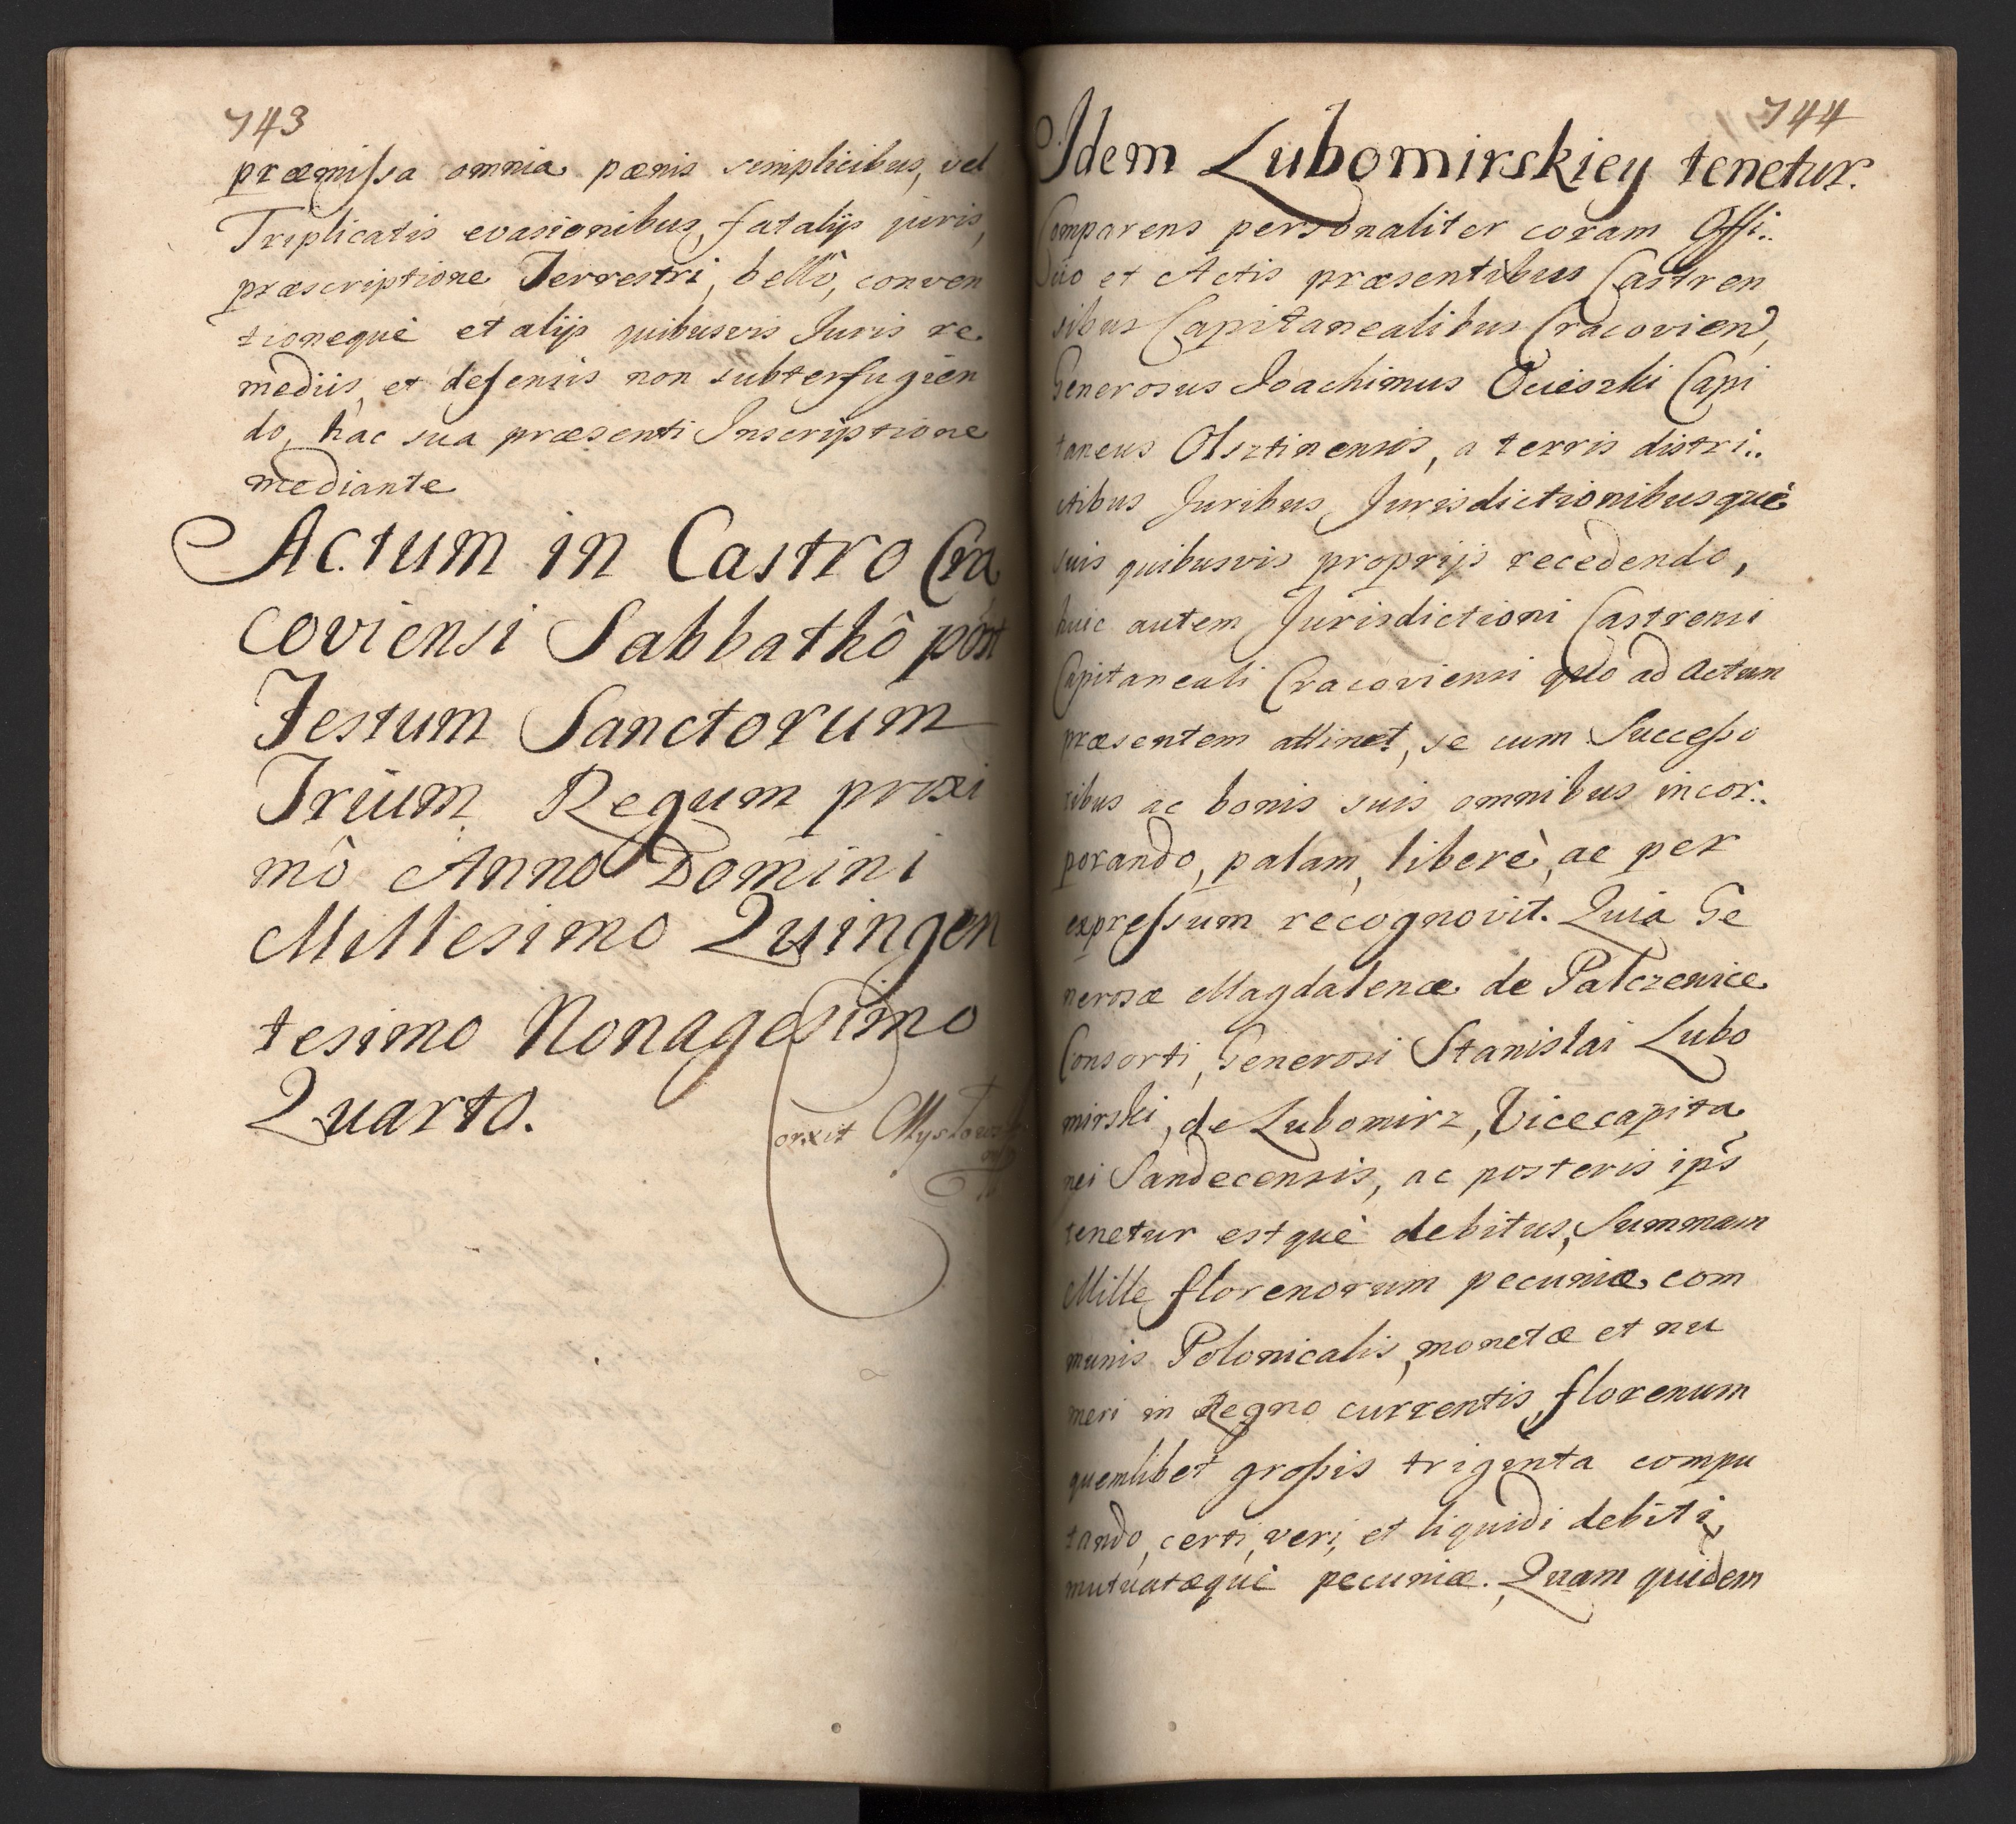 743
præmissa omnia pœnis simplicibus, vel
Triplicatis evasionibus, fatalijs juris,
præscriptione Terrestri, bellô, conven
tionequè et alijs quibusvis Juris re
mediis, et defensiis non subterfugien
do, hac sua præsenti Inscriptione
mediante
Actum in Castro Cra
coviensi Sabbathô post
Festum Sanctorum
Trium Regum proxi
mô Anno Domini
Millesimo Quingen
tesimo Nonagesimo
Quarto.
744
Idem Lubomirskiey tenetur.
Comparens personaliter coram Offi..
cio et Actis præsentibus Castren
sibus Capitanealibus Cracovien,
Generosus Joachimus Ocieszki Capi
taneus Olsztinensis, a terris distri..
ctibus Juribus, Jurisdictionibusquè
suis quibusvis proprijs recedendo,
huic autem Jurisdictioni Castrensi
Capitaneali Cracoviensi quo ad Actum
præsentem attinet, se cum Successo
ribus ac bonis suis omnibus incor..
porando, palam, liberè, ac per
expressum recognovit. Quia Ge
nerosæ Magdalenæ de Palczewice
Consorti, Generosi Stanislai Lubo
mirski, de Lubomirz, Vicecapita
nei Sandecensis, ac posteris ips
tenetur estquè debitus, Summam
Mille florenorum pecuniæ com
munis Polonicalis, monetæ et nu
meri in Regno currentis, florenum
quemlibet grossis triginta compu
tando, certi, veri, et liquidi debiti,
mutuatæquè pecuniæ. Quam quidem